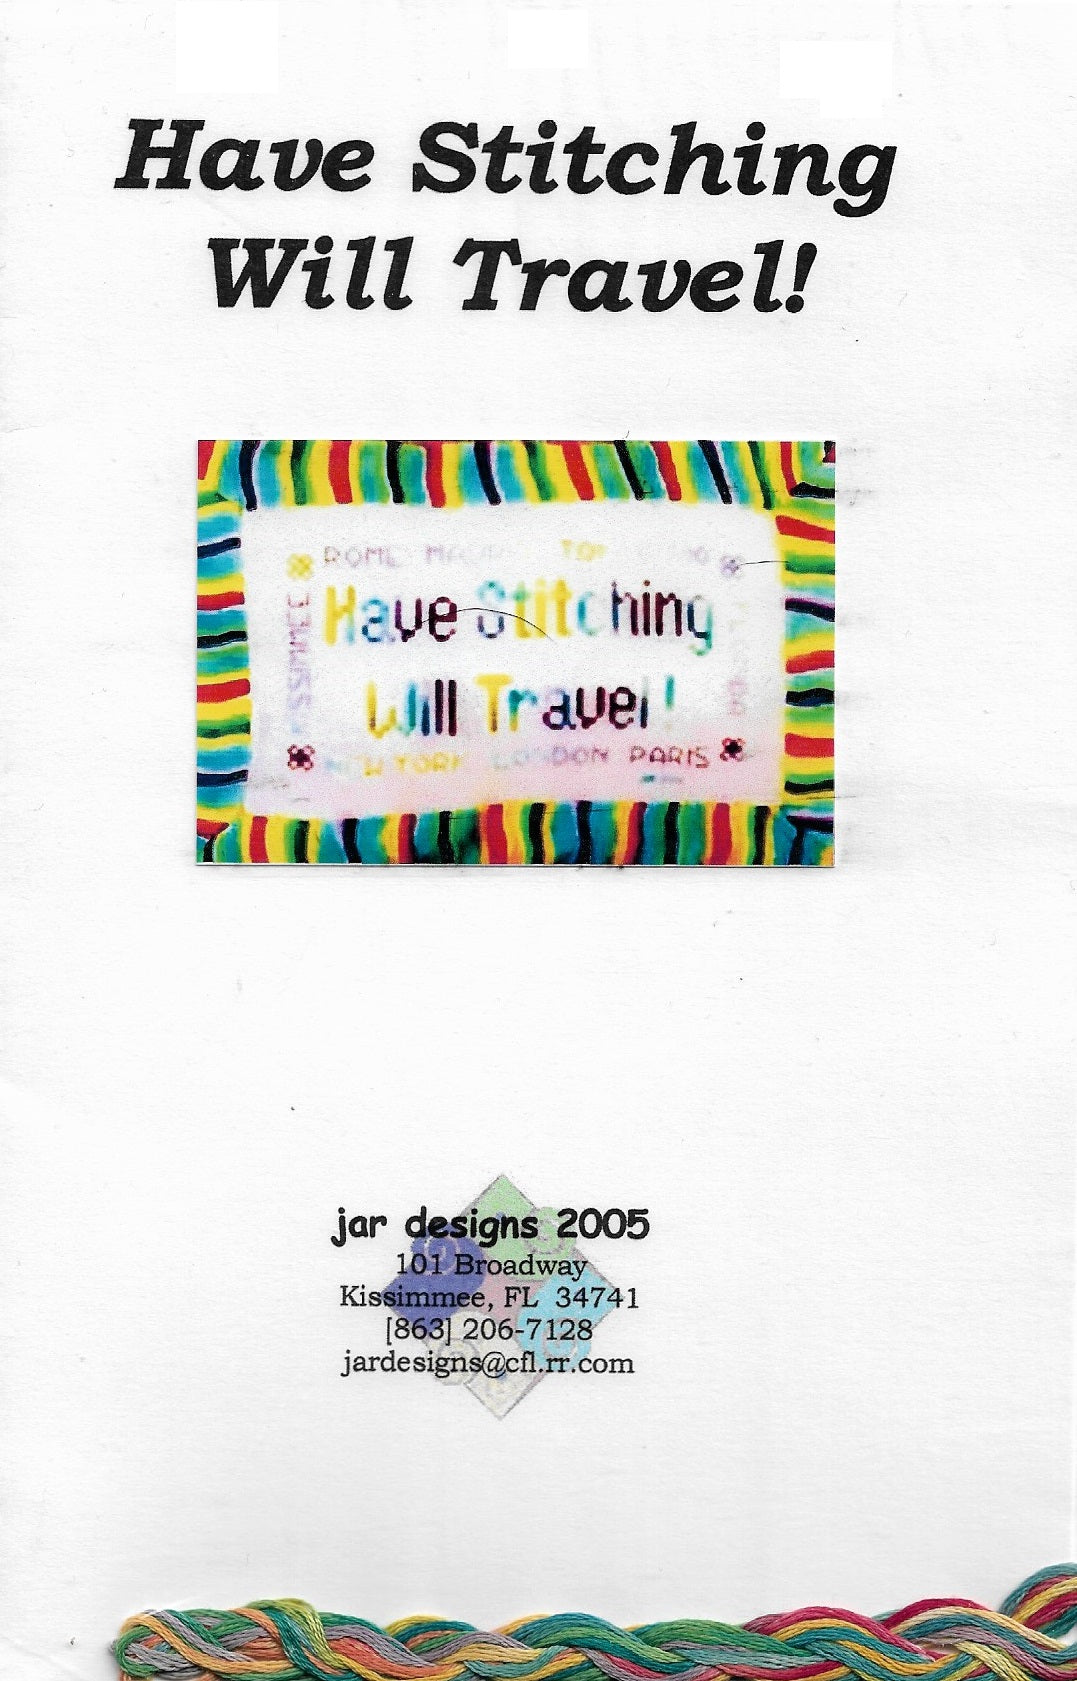 Have Stitching
Will Travel!
ROME
Have Stitching
Will Travel!
NEW YORK LONDON PARIS
jar designs 2005
101 Broadway
Kissimmee, FL 34741
[863] 206-7128
jardesigns@cfl.rr.com